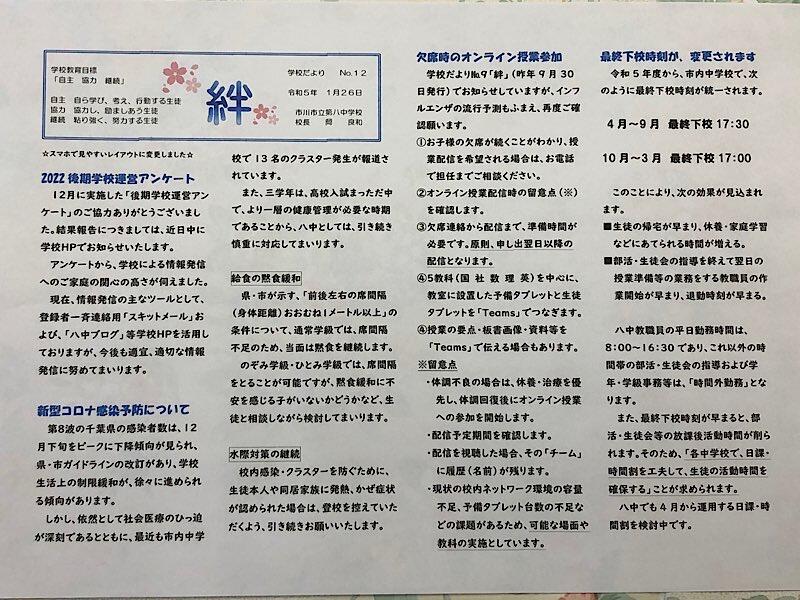 学校教育目標
「自主 協力 継続」
自主 自ら学び、考え、行動する生徒
協力 協力し、励ましあう生徒
継続 粘り強く、努力する生徒
絆
学校だより No.12
令和5年 1月26日
市川市立第八中学校
校長 岡 良和
☆スマホで見やすいレイアウトに変更しました☆
2022後期学校運営アンケート
12月に実施した「後期学校運営アン
ケート」のご協力ありがとうございまし
た。結果報告につきましては、近日中に
学校HPでお知らせいたします。
アンケートから、学校による情報発信
へのご家庭の関心の高さが伺えました。
現在、情報発信の主なツールとして、
登録者一斉連絡用「スキットメール」お
よび、「八中ブログ」等学校HPを活用し
ておりますが、今後も適宜、適切な情報
発信に努めてまいります。
新型コロナ感染予防について
第8波の千葉県の感染者数は、12
月下旬をピークに下降傾向が見られ、
県・市ガイドラインの改訂があり、学校
生活上の制限緩和が、徐々に進められ
る傾向があります。
しかし、依然として社会医療のひっ迫
が深刻であるとともに、最近も市内中学
校で13名のクラスター発生が報道さ
れています。
また、三学年は、高校入試まっただ中
で、より一層の健康管理が必要な時期
であることから、八中としては、引き続き
慎重に対応してまいります。
給食の黙食緩和
県・市が示す、「前後左右の席間隔
(身体距離)おおむね1メートル以上」の
条件について、通常学級では、席間隔
不足のため、当面は黙食を継続します。
のぞみ学級・ひとみ学級では、席間隔
をとることが可能ですが、黙食緩和に不
安を感じる子がいないかどうかなど、生
徒と相談しながら検討してまいります。
水際対策の継続
校内感染・クラスターを防ぐために、
生徒本人や同居家族に発熱、かぜ症状
が認められた場合は、登校を控えていた
だくよう、引き続きお願いいたします。
欠席時のオンライン授業参加
学校だよりNo.9「絆」(昨年9月30
日発行)でお知らせしていますが、インフ
ルエンザの流行予測もふまえ、再度ご確
認願います。
①お子様の欠席が続くことがわかり、授
業配信を希望される場合は、お電話
で担任までご相談ください。
②オンライン授業配信時の留意点(※)
を確認します。
③欠席連絡から配信まで、準備時間が
必要です。原則、申し出翌日以降の
配信となります。
④5教科(国社数理英)を中心に、
教室に設置した予備タブレットと生徒
タブレットを「Teams」でつなぎます。
④授業の要点・板書画像・資料等を
「Teams」で伝える場合もあります。
※留意点
・体調不良の場合は、休養・治療を優
先し、体調回復後にオンライン授業
への参加を開始します。
・配信予定期間を確認します。
・配信を視聴した場合、その「チーム」
に履歴(名前)が残ります。
・現状の校内ネットワーク環境の容量
不足、予備タブレット台数の不足な
どの課題があるため、可能な場面や
教科の実施としています。
最終下校時刻が、変更されます
令和5年度から、市内中学校で、次
のように最終下校時刻が統一されます。
4月～9月 最終下校 17:30
10月～3月 最終下校 17:00
このことにより、次の効果が見込まれ
ます。
■生徒の帰宅が早まり、休養・家庭学習
などにあてられる時間が増える。
■部活・生徒会の指導を終えて翌日の
授業準備等の業務をする教職員の作
業開始が早まり、退勤時刻が早まる。
八中教職員の平日勤務時間は、
8:00～16:30であり、これ以外の時
間帯の部活・生徒会の指導および学
年・学級事務等は、「時間外勤務」とな
ります。
また、最終下校時刻が早まると、部
活・生徒会等の放課後活動時間が削ら
れます。そのため、「各中学校で、日課・
時間割を工夫して、生徒の活動時間を
確保する」ことが求められます。
八中でも4月から運用する日課・時
間割を検討中です。